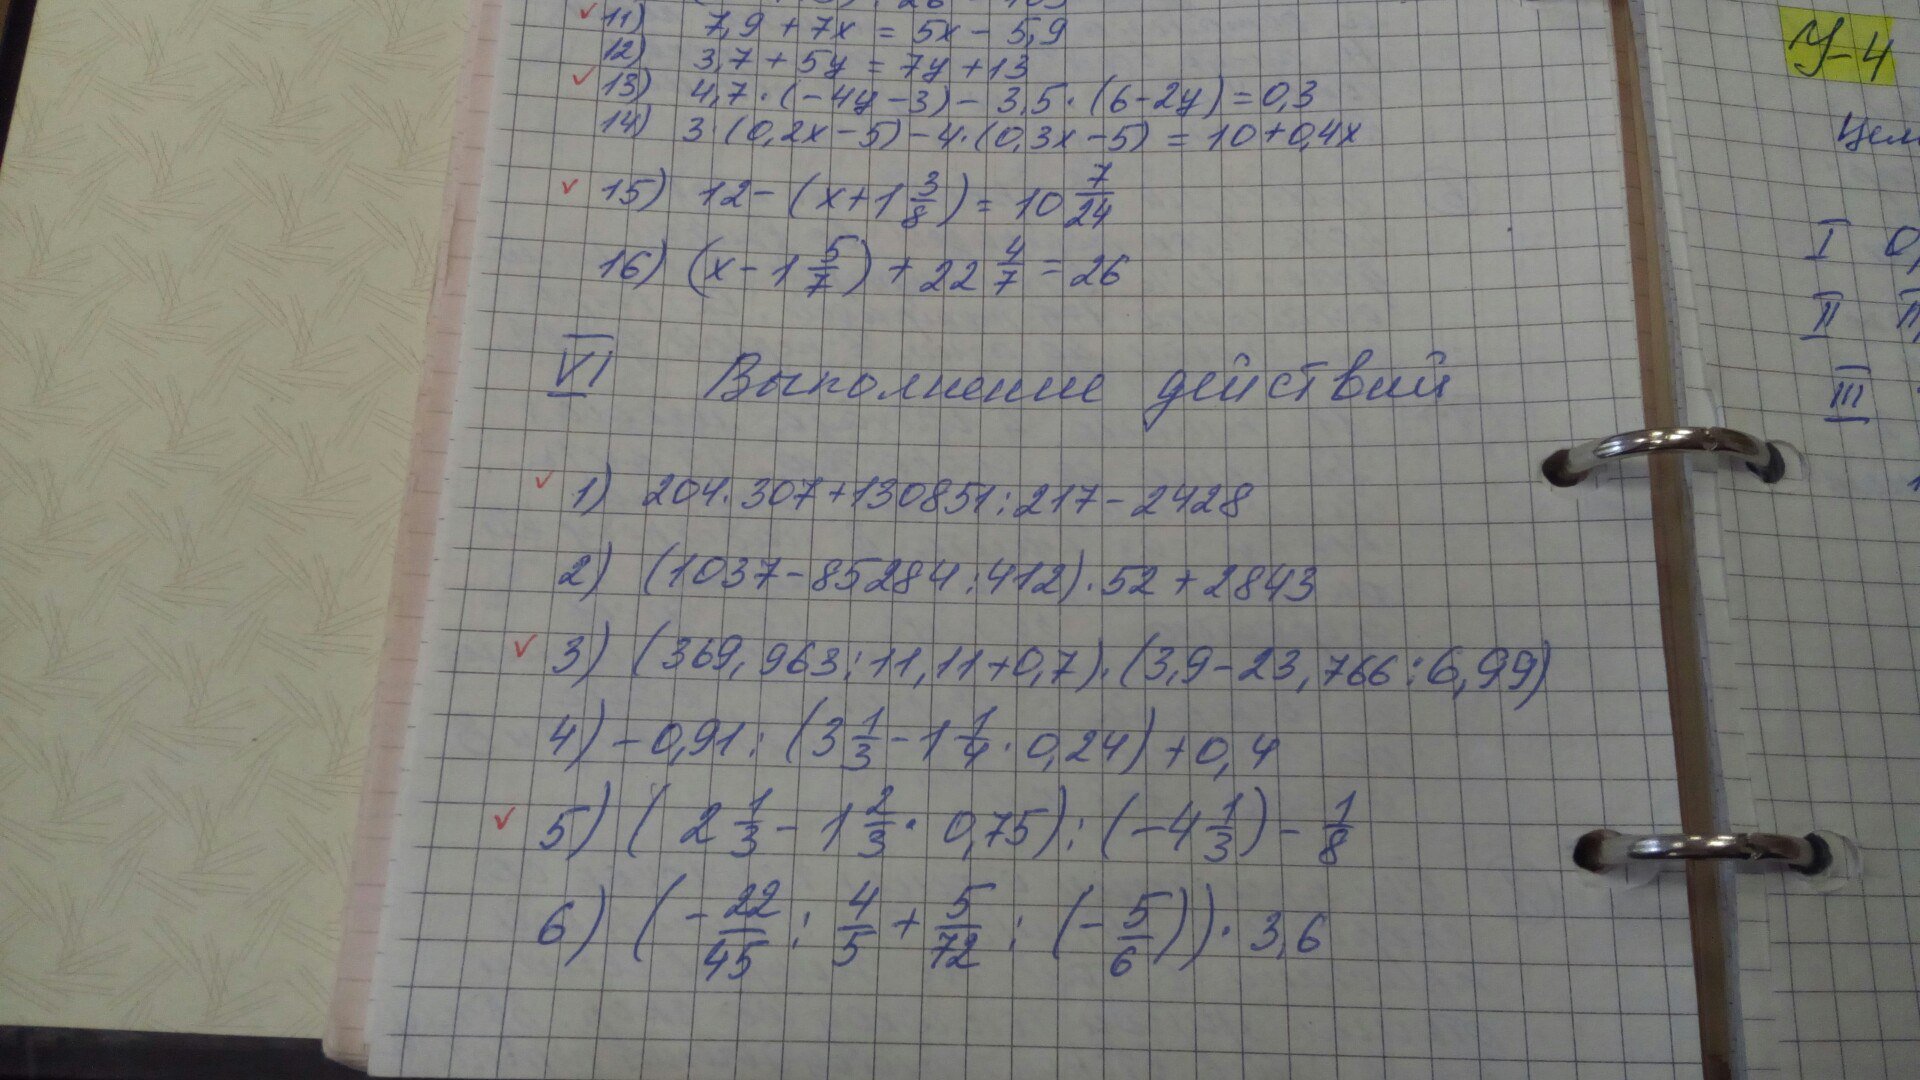 11) 7,9 + 7x = 5x - 5,9
12) 3,7 + 5y = 7y + 13
13) 4,7 · (-4y - 3) - 3,5 · (6 - 2y) = 0,3
14) 3 · (0,2x - 5) - 4 · (0,3x - 5) = 10 + 0,4x
15) 12 - (x + 1 3/8) = 10 7/24
16) (x - 1 5/7) + 22 4/7 = 26
VI Выполнение действий
1) 204 · 307 + 130851 : 217 - 2428
2) (1037 - 85284 : 412) · 52 + 2843
3) (369,963 : 11,11 + 0,7) · (3,9 - 23,766 : 6,99)
4) - 0,91 : (3 1/3 - 1 1/4 · 0,24) + 0,4
5) (2 1/3 - 1 2/3 · 0,75) : (-4 1/3) - 1/8
6) (- 22/45 : 4/5 + 5/72 : (- 5/6)) · 3,6
У-4
I
II
III